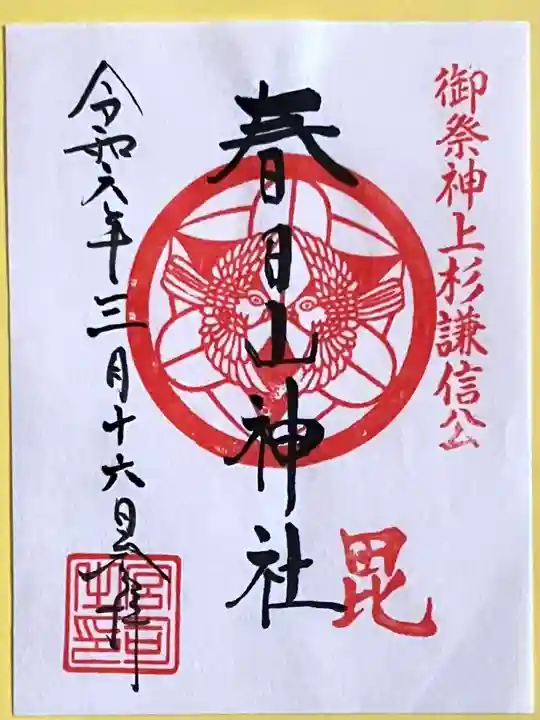 御祭神上杉謙信公
春日山神社
毘
令和六年三月十六日奉拝